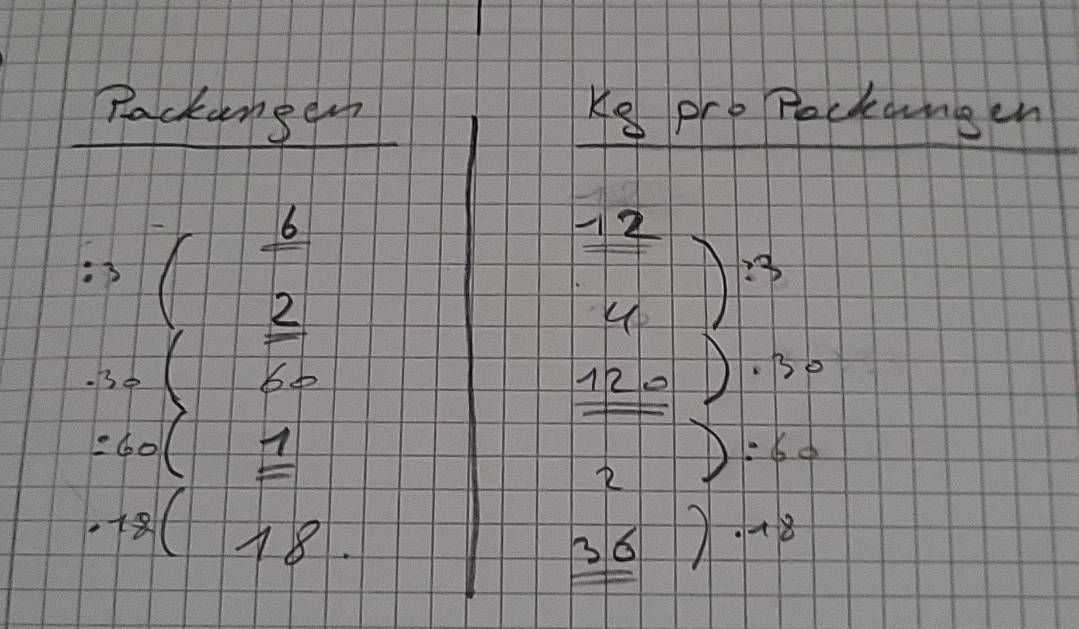 Packungen Kg pro Packungen
:3 6 12 :3
2 4
.30 60 120 .30
:60 1 2 :60
.18 18. 36 .18